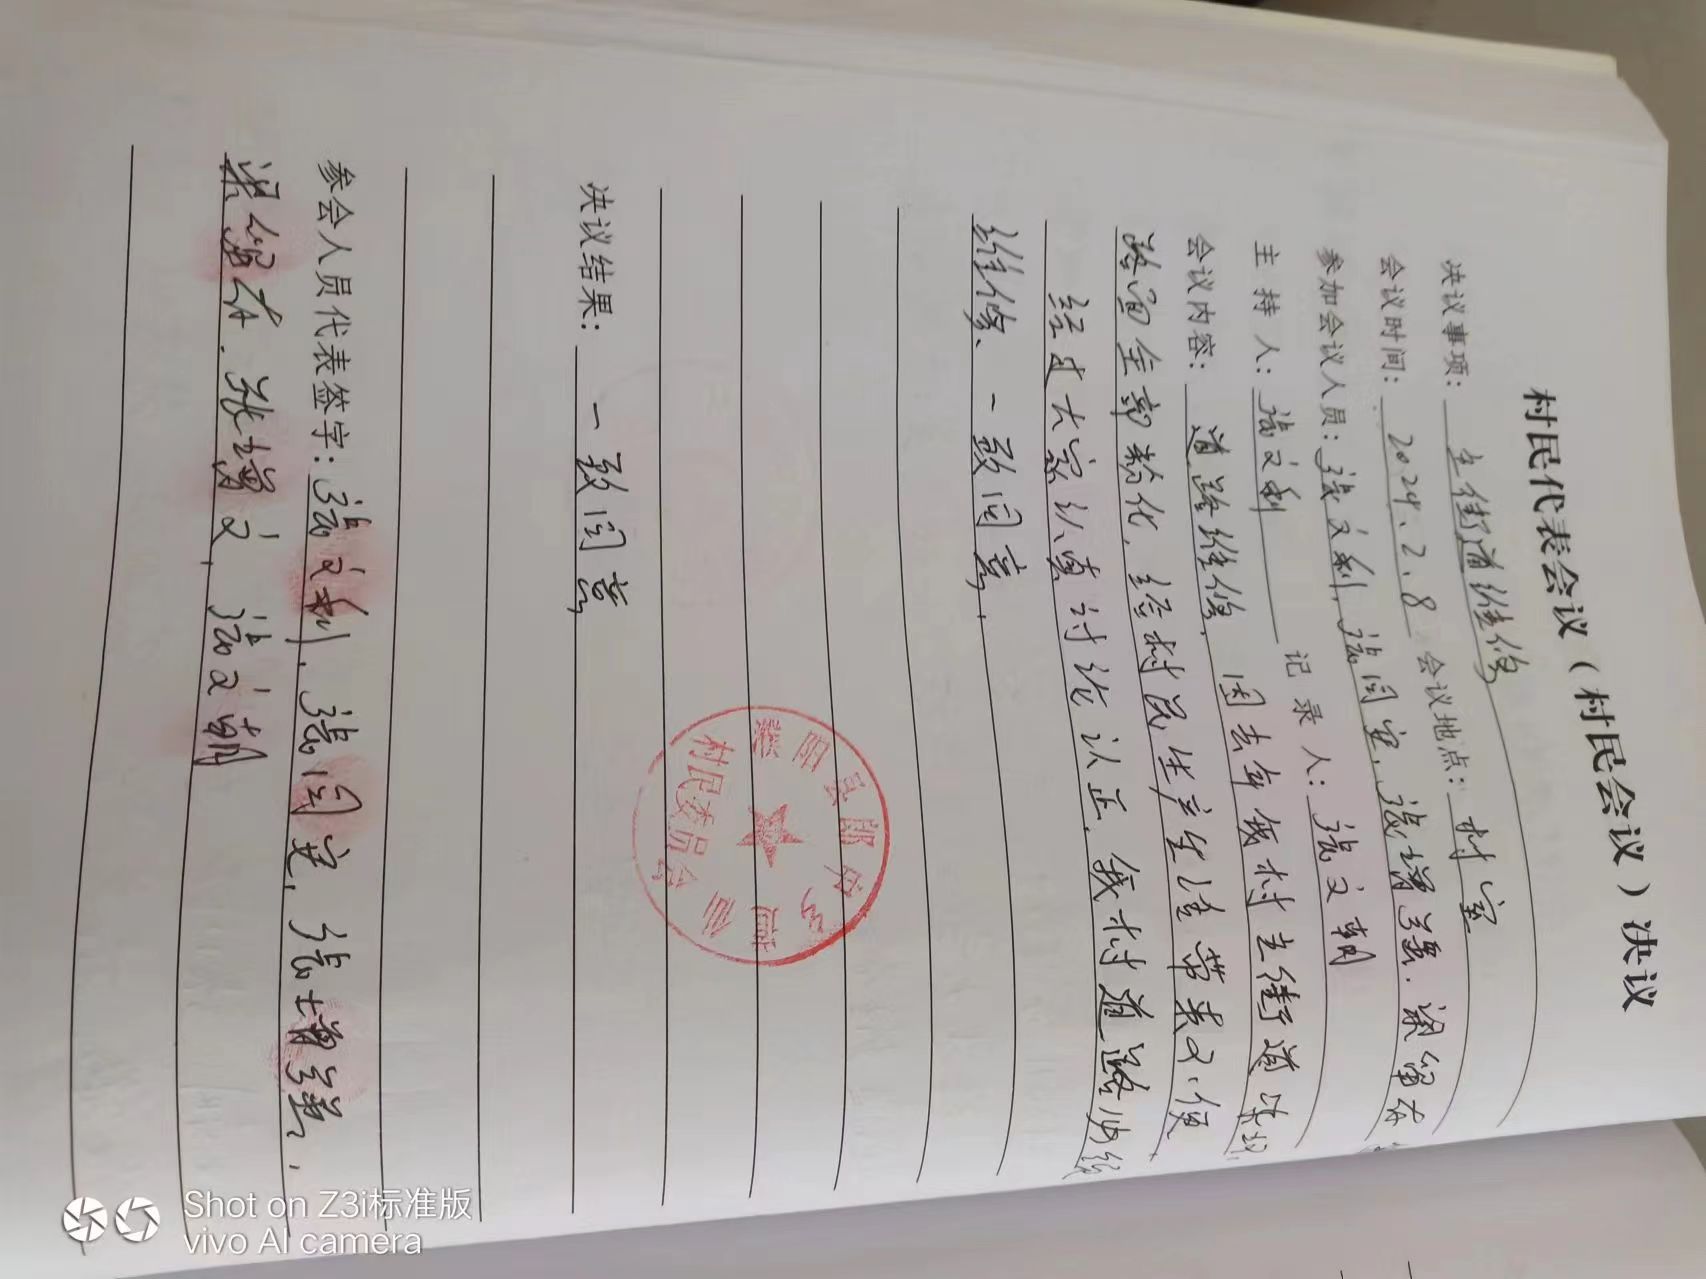 村民代表会议（村民会议）决议
决议事项：主街道维修
会议时间：2024.2.8 会议地点：村室
参加会议人员：张文利，张闰宝，张增强，梁留存
主持人：张文利 记录人：张文朝
会议内容：道路维修，因去年我村主街道
路面全部粉化，给村民生产生活带来不便
经过大家认真讨论认正，我村道路必须
维修、一致同意，
决议结果：一致同意
参会人员代表签字：张文利，张闰宝，张增强，
梁留存，张增文，张文朝
阳县
村民委员会
Shot on Z3i标准版
vivo AI camera